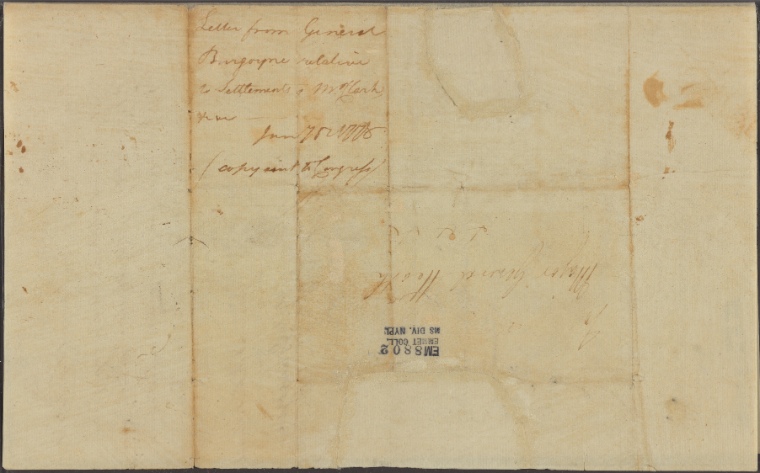 Letter from General
Burgoyne relative
to Settlements Mr Clark
(copy sent to Congress)
Major General Heath
EM8802
EMMET COLL.
MS DIV. NYPL